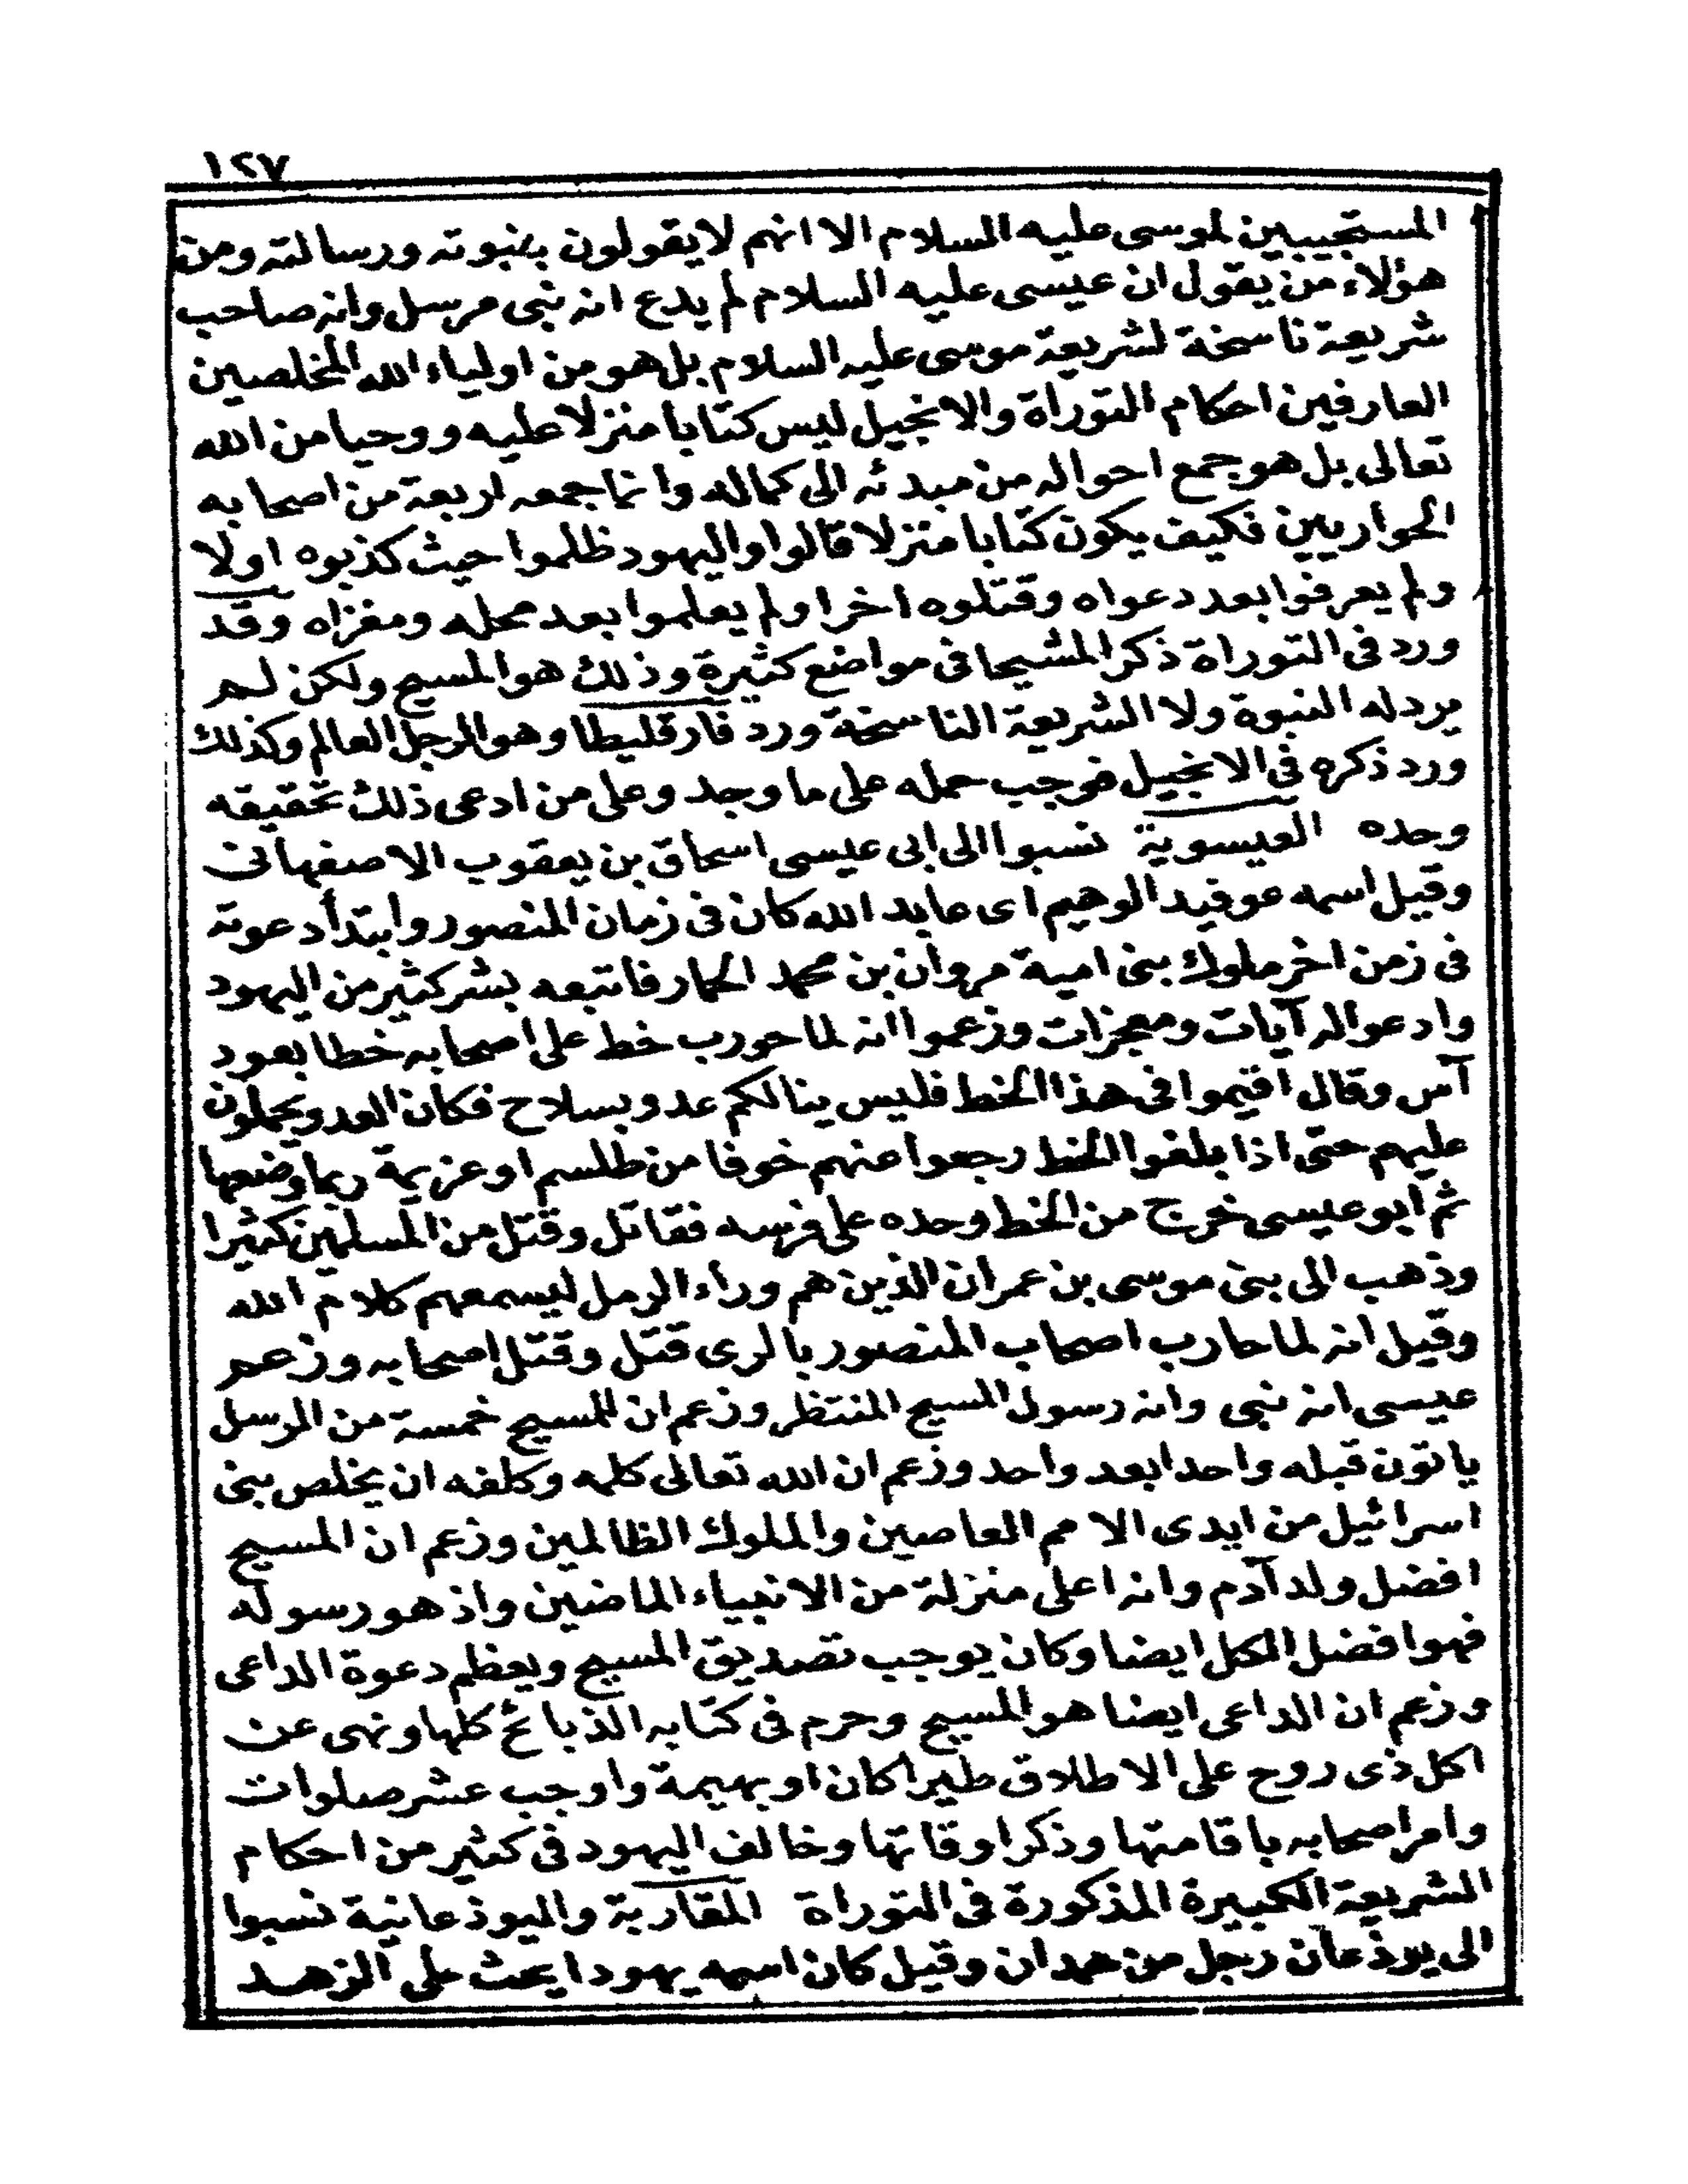 ١٢٧
المستجيبين لموسى عليه السلام الا انهم لا يقولون بنبوته ورسالته ومن
هؤلاء من يقول ان عيسى عليه السلام لم يدع انه نبى مرسل وانه صاحب
شريعة ناسخة لشريعة موسى عليه السلام بل هو من اولياء الله المخلصين
العارفين احكام التوراة والانجيل ليس كتابا منزلا عليه ووحيا من الله
تعالى بل هو جمع احواله من مبدئه الى كماله وانما جمعه اربعة من اصحابه
الحواريين فكيف يكون كتابا منزلا قالوا واليهود ظلموا حيث كذبوه اولا
ولم يعرفوا بعد دعواه وقتلوه اخرا ولم يعلموا بعد محله ومغزاه وقد
ورد فى التوراة ذكر المشيحا فى مواضع كثيرة وذلك هو المسيح ولكن لم
يرد له النبوة ولا الشريعة الناسخة ورد فارقليطا وهو الرجل العالم وكذلك
ورد ذكره فى الانجيل فوجب حمله على ما وجد وعلى من ادعى ذلك تحقيقه
وحده العيسوية نسبوا الى ابى عيسى اسحاق بن يعقوب الاصفهانى
وقيل اسمه عوفيد الوهيم اى عابد الله كان فى زمان المنصور وابتدأ دعوته
فى زمن اخر ملوك بنى امية مروان بن محمد الحمار فاتبعه بشر كثير من اليهود
وادعوا له آيات ومعجزات وزعموا انه لما حورب خط على اصحابه خطا بعود
آس وقال اقيموا فى هذا الخط فليس ينالكم عدو بسلاح فكان العدو يحملون
عليهم حتى اذا بلغوا الخط رجعوا عنهم خوفا من طلسم او عزيمة ربما وضعها
ثم ابو عيسى خرج من الخط وحده على فرسه فقاتل وقتل من المسلمين كثيرا
وذهب الى بنى موسى بن عمران الذين هم وراء الرمل ليسمعهم كلام الله
وقيل انه لما حارب اصحاب المنصور بالرى قتل وقتل اصحابه وزعم
عيسى انه نبى وانه رسول المسيح المنتظر وزعم ان للمسيح خمسة من الرسل
ياتون قبله واحدا بعد واحد وزعم ان الله تعالى كلمه وكلفه ان يخلص بنى
اسرائيل من ايدى الامم العاصين والملوك الظالمين وزعم ان المسيح
افضل ولد آدم وانه اعلى منزلة من الانبياء الماضين واذ هو رسوله
فهو افضل الكل ايضا وكان يوجب تصديق المسيح ويعظم دعوة الداعى
وزعم ان الداعى ايضا هو المسيح وحرم فى كتابه الذبائح كلها ونهى عن
اكل ذى روح على الاطلاق طيرا كان او بهيمة واوجب عشر صلوات
وامر اصحابه باقامتها وذكر اوقاتها وخالف اليهود فى كثير من احكام
الشريعة الكبيرة المذكورة فى التوراة المقاربة واليوذعانية نسبوا
الى يوذعان رجل من همدان وقيل كان اسمه يهودا يحث على الزهد